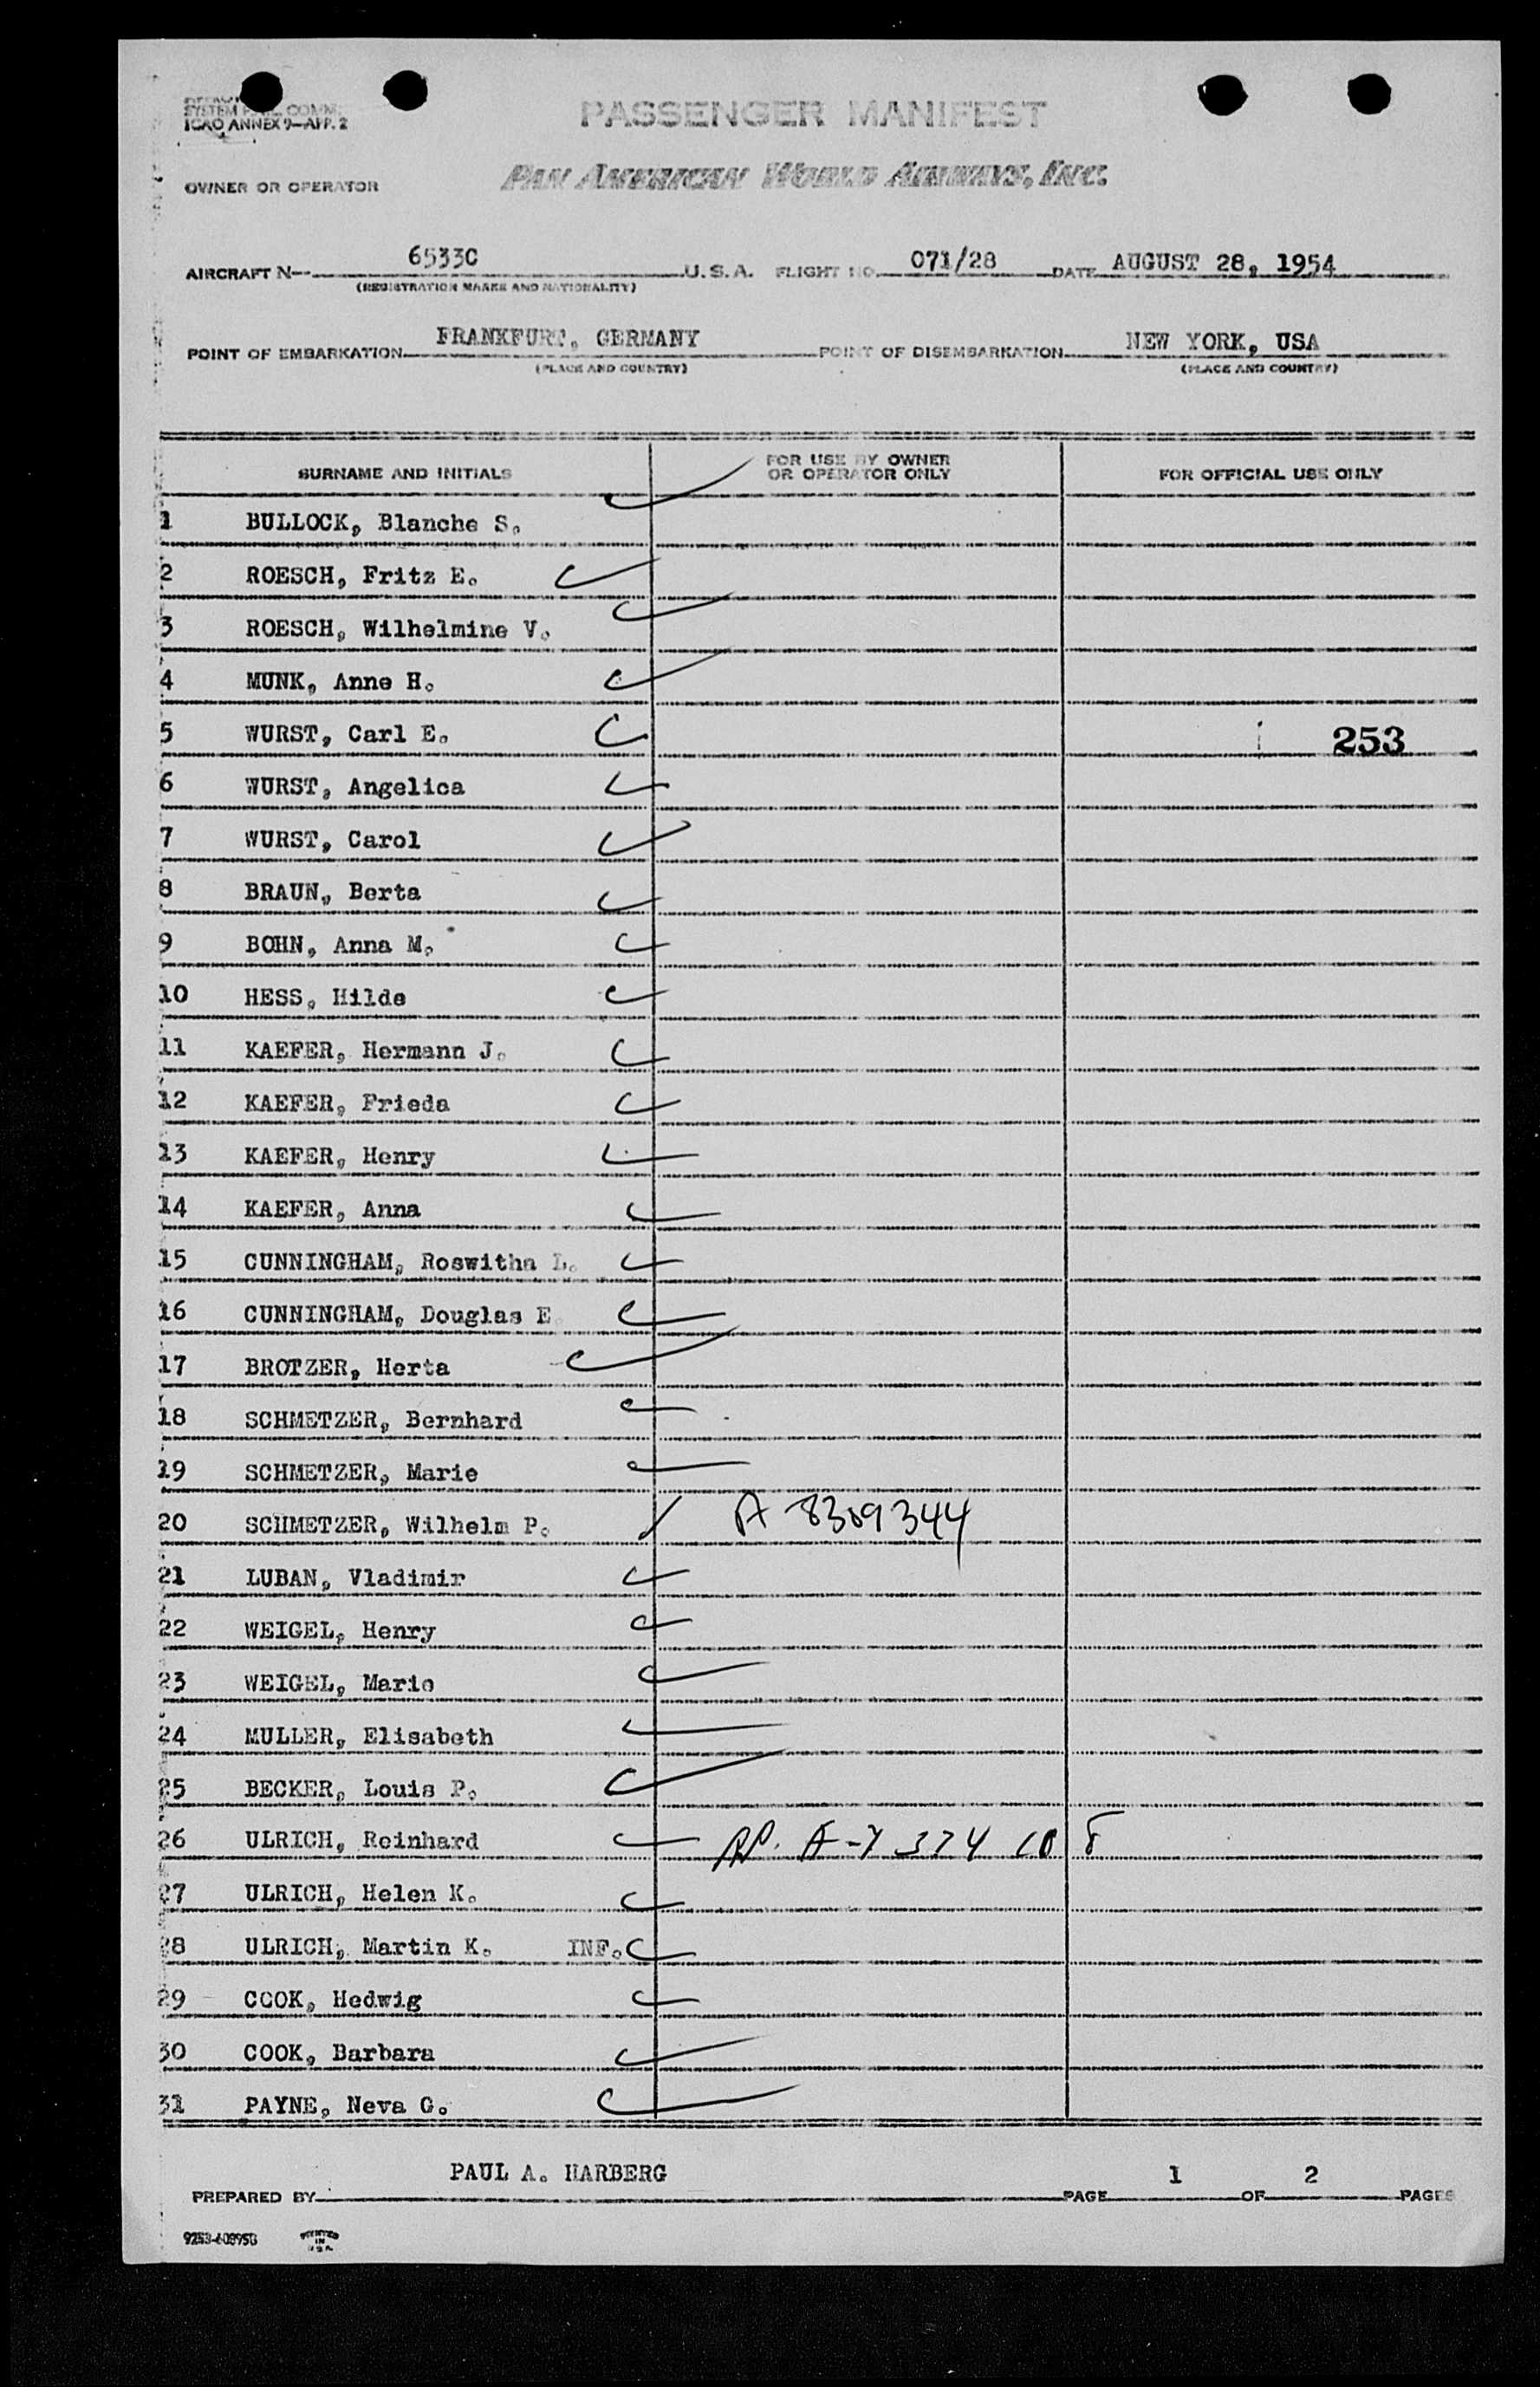 SYSTEM COMM.
ICAO ANNEX 9—APP. 2
PASSENGER MANIFEST
PAN AMERICAN WORLD AIRWAYS, INC.
OWNER OR OPERATOR
AIRCRAFT N— 6533C U.S.A. FLIGHT NO. 071/28 DATE AUGUST 28, 1954
(REGISTRATION MARKS AND NATIONALITY)
POINT OF EMBARKATION FRANKFURT, GERMANY POINT OF DISEMBARKATION NEW YORK, USA
(PLACE AND COUNTRY) (PLACE AND COUNTRY)
SURNAME AND INITIALS FOR USE BY OWNER OR OPERATOR ONLY FOR OFFICIAL USE ONLY
1 BULLOCK, Blanche S.
2 ROESCH, Fritz E.
3 ROESCH, Wilhelmine V.
4 MUNK, Anne H.
5 WURST, Carl E. 253
6 WURST, Angelica
7 WURST, Carol
8 BRAUN, Berta
9 BOHN, Anna M.
10 HESS, Hilde
11 KAEFER, Hermann J.
12 KAEFER, Frieda
13 KAEFER, Henry
14 KAEFER, Anna
15 CUNNINGHAM, Roswitha L.
16 CUNNINGHAM, Douglas E.
17 BROTZER, Herta
18 SCHMETZER, Bernhard
19 SCHMETZER, Marie
20 SCHMETZER, Wilhelm P. A 8309344
21 LUBAN, Vladimir
22 WEIGEL, Henry
23 WEIGEL, Marie
24 MULLER, Elisabeth
25 BECKER, Louis P.
26 ULRICH, Reinhard
27 ULRICH, Helen K.
28 ULRICH, Martin K. INF.
29 COOK, Hedwig
30 COOK, Barbara
31 PAYNE, Neva G.
PREPARED BY PAUL A. HARBERG PAGE 1 OF 2 PAGES
PRINTED IN U.S.A.